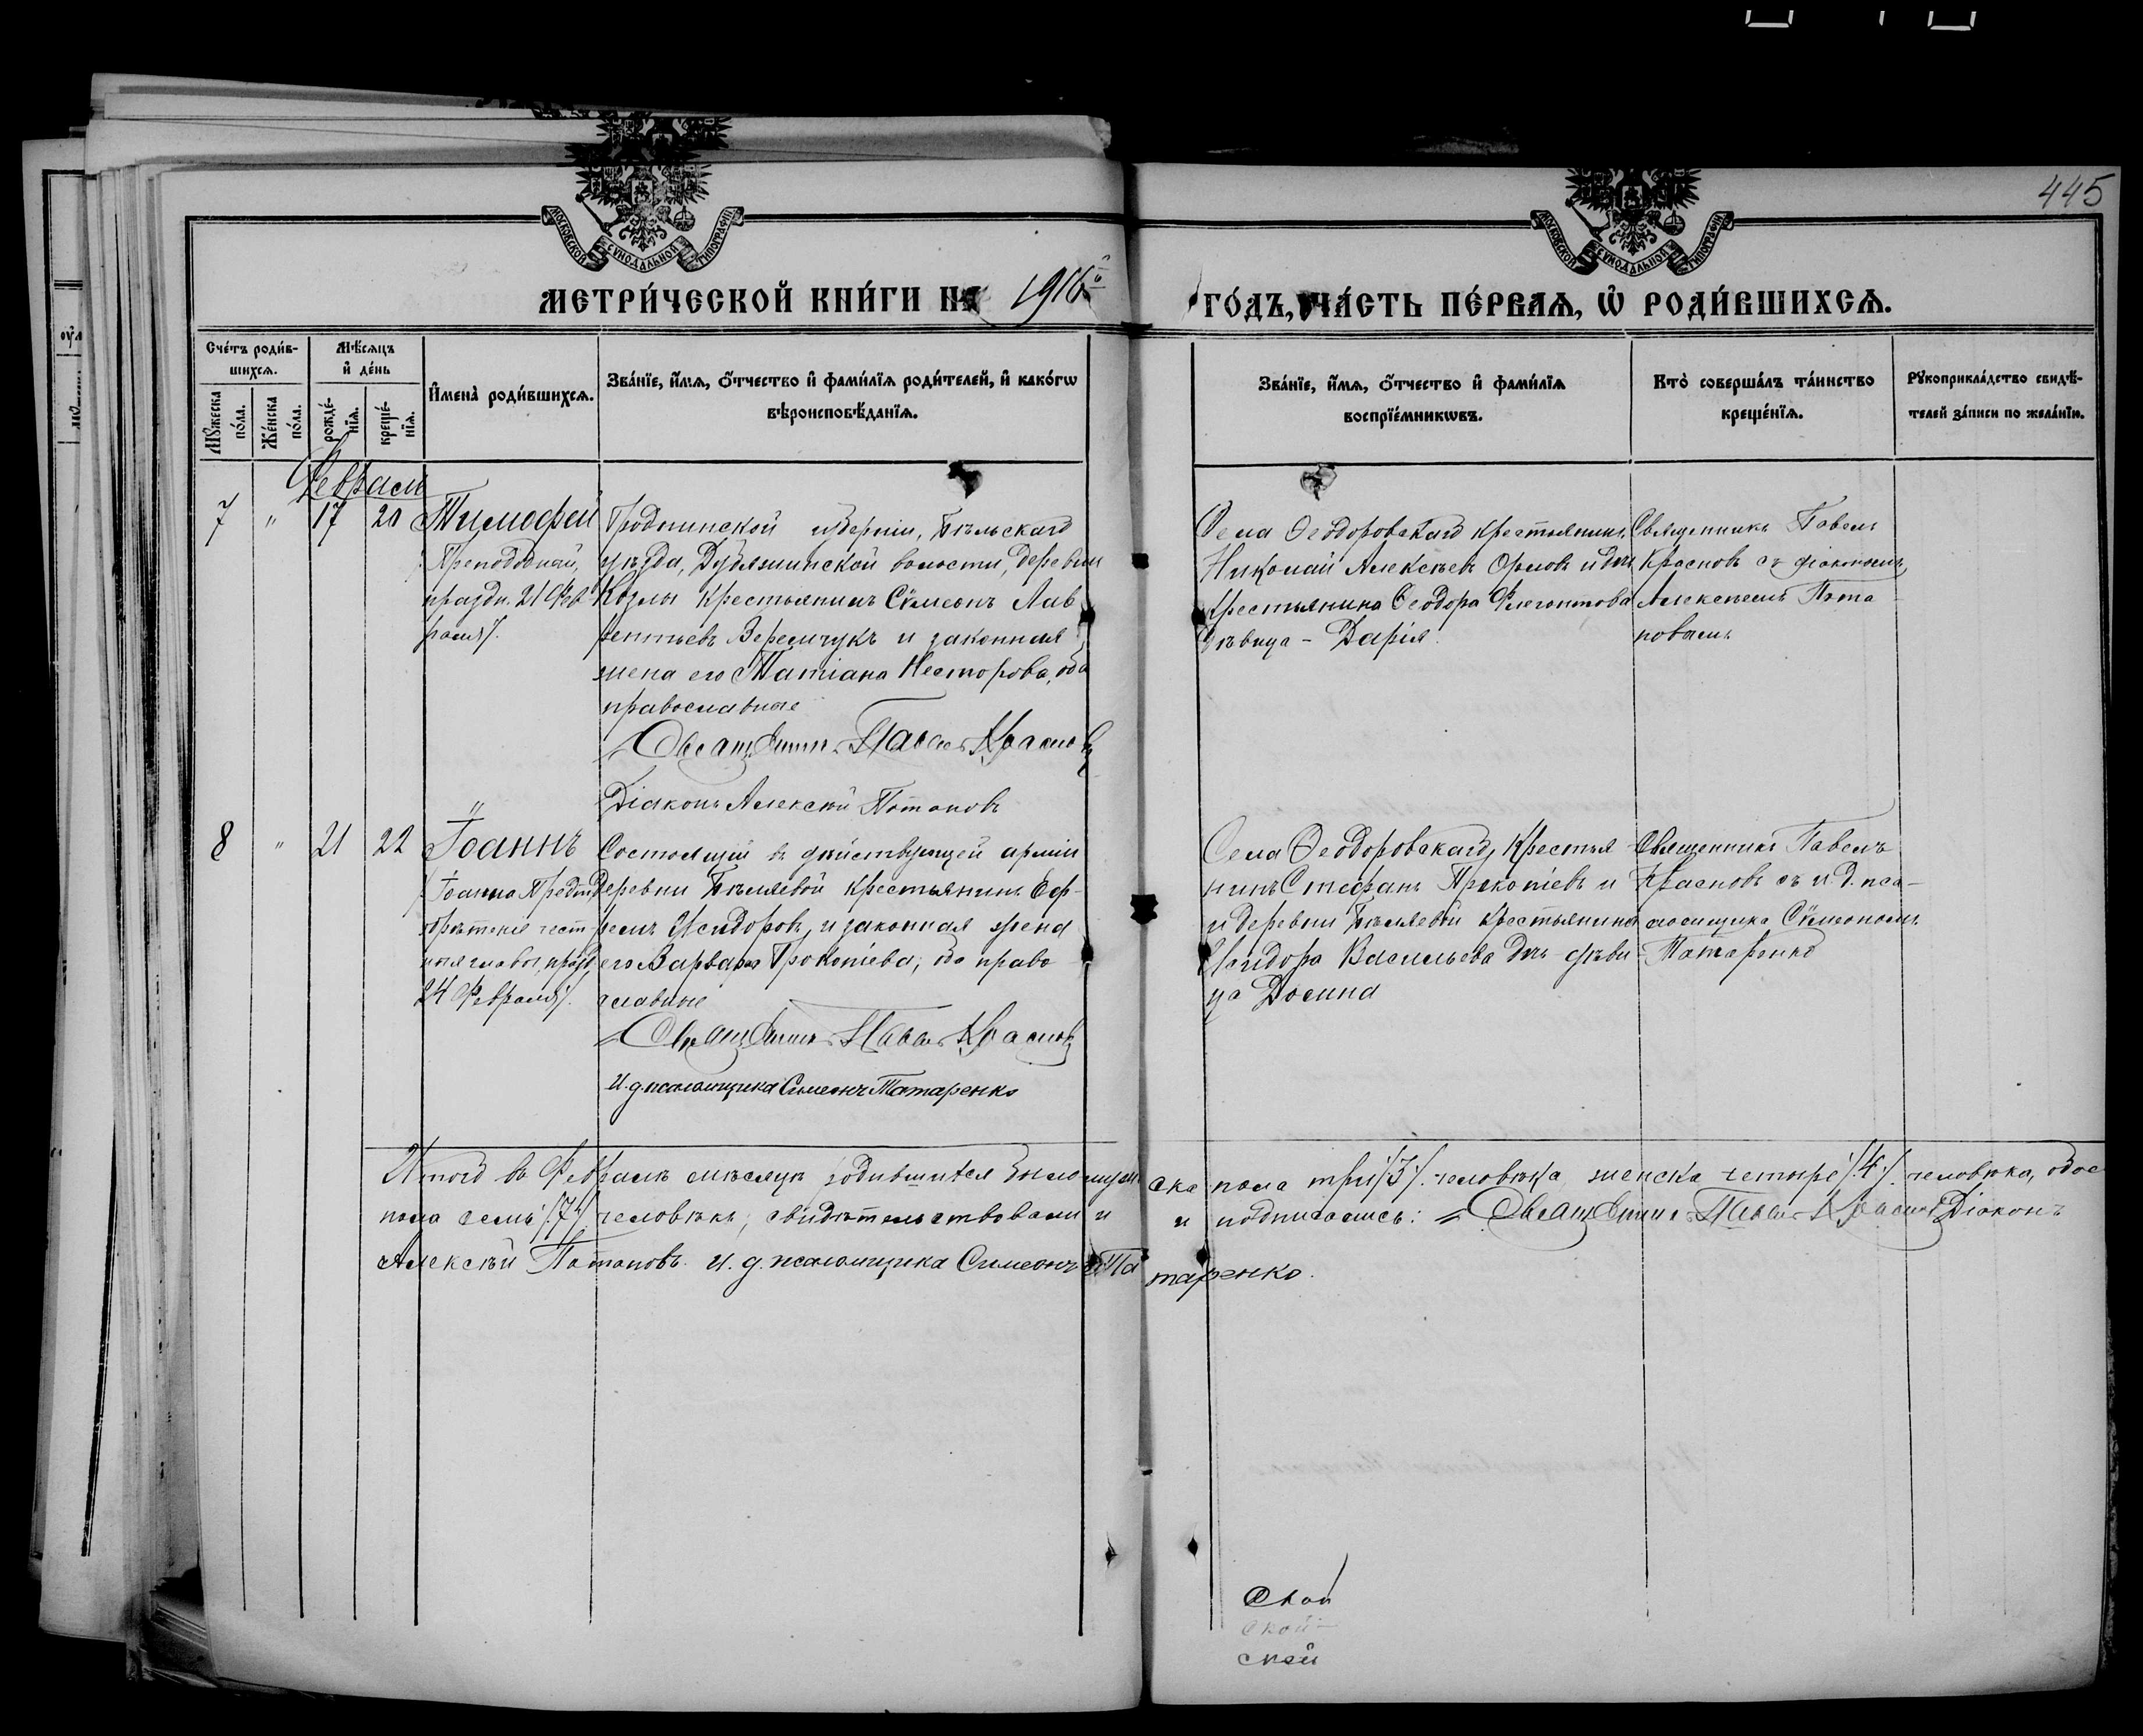 445
МОСКОВСКОЙ СѴНОДАЛЬНОЙ ТИПОГРАФІИ
МОСКОВСКОЙ СѴНОДАЛЬНОЙ ТИПОГРАФІИ
МЕТРИ́ЧЕСКОЙ КНИ́ГИ НА 1916й ГО́ДЪ, ЧА́СТЬ ПЕ́РВАѦ, Ѡ҆ РОДИ́ВШИХСѦ.
Сче́тъ роди́в-
шихсѧ.
Мꙋ́жеска по́ла.
Же́нска по́ла.
Мѣ́сѧцъ
и҆ де́нь
рожде́-
нїѧ.
креще́-
нїѧ.
И҆мена̀ роди́вшихсѧ.
Зва́нїе, и҆́мѧ, ѻ҆́тчество и҆ фами́лїѧ роди́телей, и҆ како́гѡ
вѣроисповѣ́данїѧ.
Зва́нїе, и҆́мѧ, ѻ҆́тчество и҆ фами́лїѧ
воспрїе́мникѡвъ.
Кто̀ соверша́лъ та́инство
креще́нїѧ.
Рꙋкоприкла́дство свидѣ́-
телей за́писи по жела́нїю.
Февраль
7 " 17 20 Тимофей
/Преподобный,
праздн. 21 Фев
раля/.
Гродненской губерніи, Бѣльскаго
уѣзда, Дубяжинской волости, деревни
Козлы крестьянинъ Сѵмеонъ Лав
рентьевъ Веремчукъ и законная
жена его Татіана Несторова, оба
православные
Священникъ Павелъ Красновъ
Діаконъ Алексѣй Потаповъ
Села Ѳеодоровскаго крестьянинъ
Николай Алексѣевъ Орловъ и дочь
крестьянина Ѳеодора Флегонтова
дѣвица - Дарія.
Священникъ Павелъ
Красновъ съ діакономъ
Алексѣемъ Пота
повымъ
8 " 21 22 Іоаннъ
/Іоанна Предт.
обрѣтеніе чест
ныя главы, празд.
24 Февраля/.
Состоящій въ дѣйствующей арміи
Деревни Бѣляевой крестьянинъ Еф-
ремъ Исидоровъ, и законная жена
его Варвара Прокопіева, оба право
славные
Священникъ Павелъ Красновъ
И. д. псаломщика Симеонъ Татаренко
Села Ѳеодоровскаго, Крестья
нинъ Стефанъ Прокопіевъ и
и деревни Бѣляевой крестьянина
Исидора Васильева дочь дѣви-
ца Досина
Священникъ Павелъ
Красновъ съ и. д. пса-
ломщика Сѵмеономъ
Татаренко
Итого въ Февралѣ мѣсяцѣ родившихся было мужеска пола три /3/. человѣка, женска четыре /4/. человѣка, обоего
пола семь /7/ человѣкъ; свидѣтельствовали и и подписались: Священникъ Павелъ Красновъ Діаконъ
Алексѣй Потаповъ. И. д. псаломщика Симеонъ Татаренко.
ской
ской
ской